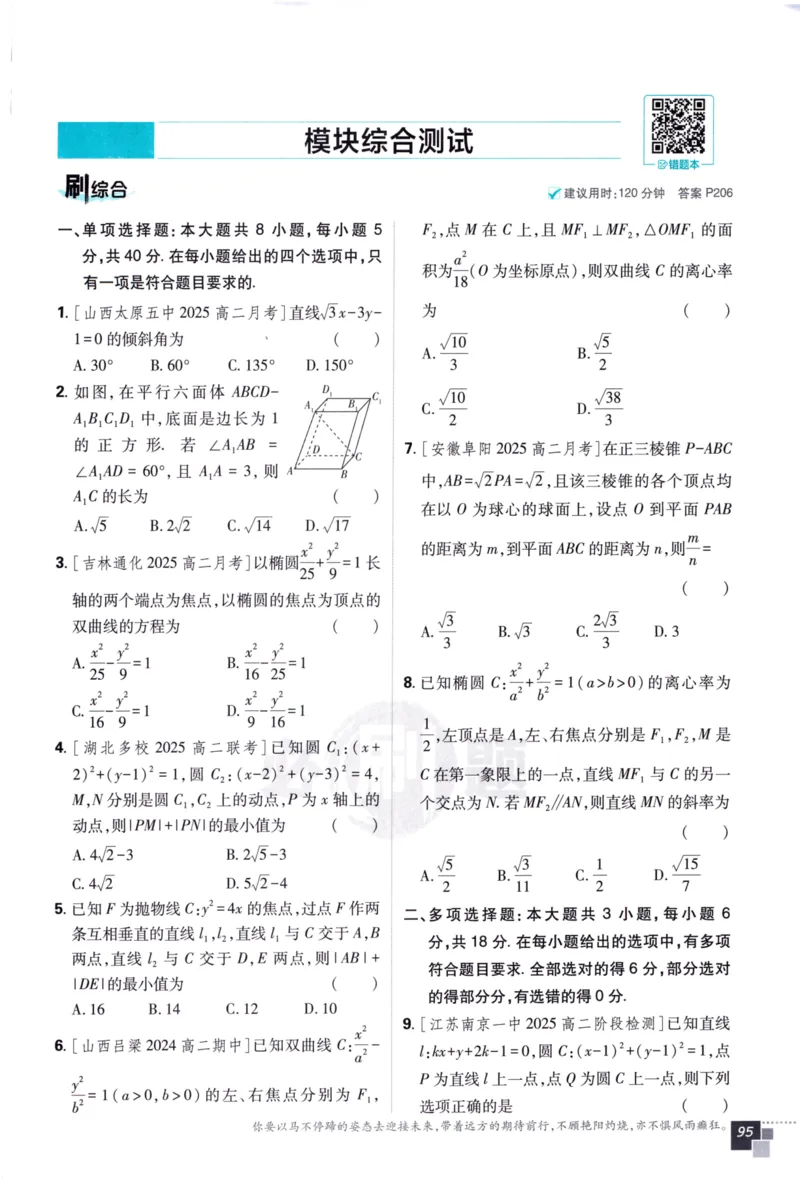 模块综合测试
错题本
刷综合
建议用时:120分钟 答案P206
一、单项选择题:本大题共 8 小题,每小题 5
分,共40分.在每小题给出的四个选项中,只
有一项是符合题目要求的.
1.[山西太原五中2025高二月考]直线√3x-3y-
1=0的倾斜角为 ( )
A.30° B.60° C.135° D.150°
2.如图,在平行六面体 ABCD-
A₁B₁C₁D₁ 中,底面是边长为 1
的正方形.若 ∠A₁AB =
∠A₁AD = 60°,且 A₁A = 3,则
A₁C的长为 ( )
A.√5 B.2√2 C.√14 D.√17
D₁
C₁
A₁
B₁
D
C
A
B
3.[吉林通化2025高二月考]以椭圆x²/25+y²/9=1长
轴的两个端点为焦点,以椭圆的焦点为顶点的
双曲线的方程为 ( )
A.x²/25-y²/9=1 B.x²/16-y²/25=1
C.x²/16-y²/9=1 D.x²/9-y²/16=1
4.[湖北多校 2025 高二联考]已知圆 C₁:(x+
2)²+(y-1)²=1,圆 C₂:(x-2)²+(y-3)²=4,
M,N分别是圆C₁,C₂上的动点,P为x轴上的
动点,则|PM|+|PN|的最小值为 ( )
A.4√2-3 B.2√5-3
C.4√2 D.5√2-4
5.已知F为抛物线C:y²=4x的焦点,过点F作两
条互相垂直的直线l₁,l₂,直线l₁与C交于A,B
两点,直线 l₂ 与 C 交于 D,E 两点,则|AB|+
|DE|的最小值为 ( )
A.16 B.14 C.12 D.10
6.[山西吕梁2024高二期中]已知双曲线C:x²/a²-
y²/b²=1(a>0,b>0)的左、右焦点分别为 F₁,
F₂,点M在C上,且MF₁⊥MF₂,△OMF₁的面
积为a²/18(O为坐标原点),则双曲线C的离心率
为 ( )
A.√10/3 B.√5/2
C.√10/2 D.√38/3
7.[安徽阜阳2025高二月考]在正三棱锥P-ABC
中,AB=√2PA=√2,且该三棱锥的各个顶点均
在以 O 为球心的球面上,设点 O 到平面 PAB
的距离为m,到平面ABC的距离为n,则m/n=
( )
A.√3/3 B.√3 C.2√3/3 D.3
8.已知椭圆 C:x²/a²+y²/b²=1(a>b>0)的离心率为
1/2,左顶点是A,左、右焦点分别是F₁,F₂,M是
C在第一象限上的一点,直线MF₁与C的另一
个交点为N.若MF₂//AN,则直线MN的斜率为
( )
A.√5/2 B.√3/11 C.1/2 D.√15/7
二、多项选择题:本大题共 3 小题,每小题 6
分,共18分.在每小题给出的选项中,有多项
符合题目要求.全部选对的得6分,部分选对
的得部分分,有选错的得0分.
9.[江苏南京一中2025高二阶段检测]已知直线
l:kx+y+2k-1=0,圆C:(x-1)²+(y-1)²=1,点
P为直线l上一点,点Q为圆C上一点,则下列
选项正确的是 ( )
必刷题
你要以马不停蹄的姿态去迎接未来,带着远方的期待前行,不顾艳阳灼烧,亦不惧风雨癫狂。
95